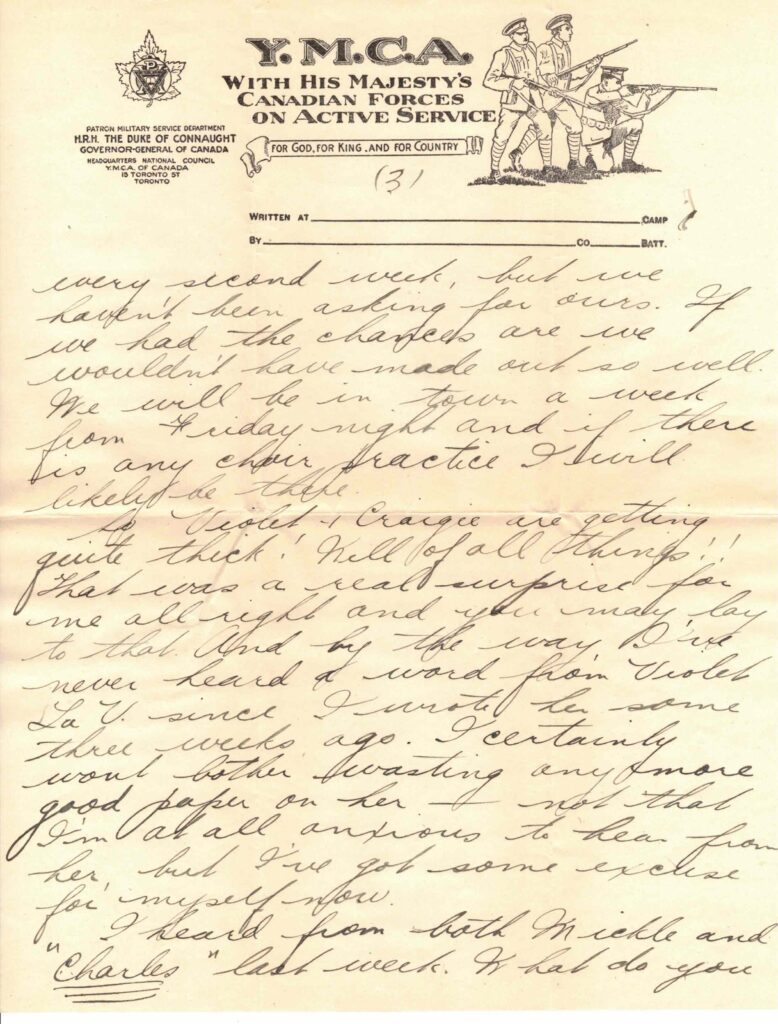 Y.M.C.A.
WITH HIS MAJESTY'S
CANADIAN FORCES
ON ACTIVE SERVICE
FOR GOD, FOR KING, AND FOR COUNTRY
PATRON MILITARY SERVICE DEPARTMENT
H.R.H. THE DUKE OF CONNAUGHT
GOVERNOR-GENERAL OF CANADA
HEADQUARTERS NATIONAL COUNCIL
Y.M.C.A. OF CANADA
15 TORONTO ST
TORONTO
(3)
WRITTEN AT CAMP
BY CO. BATT.
every second week, but we
haven't been asking for ours. If
we had the chances are we
wouldn't have made out so well.
We will be in town a week
from Friday night and if there
is any choir practice I will
likely be there.
So Violet + Craigie are getting
quite thick! Well of all things!!
That was a real surprise for
me all right and you may lay
to that. And by the way I've
never heard a word from Violet
La V. since I wrote her some
three weeks ago. I certainly
wont bother wasting any more
good paper on her — not that
I'm at all anxious to hear from
her, but I've got some excuse
for myself now.
I heard from both Mickle and
"Charles" last week. What do you